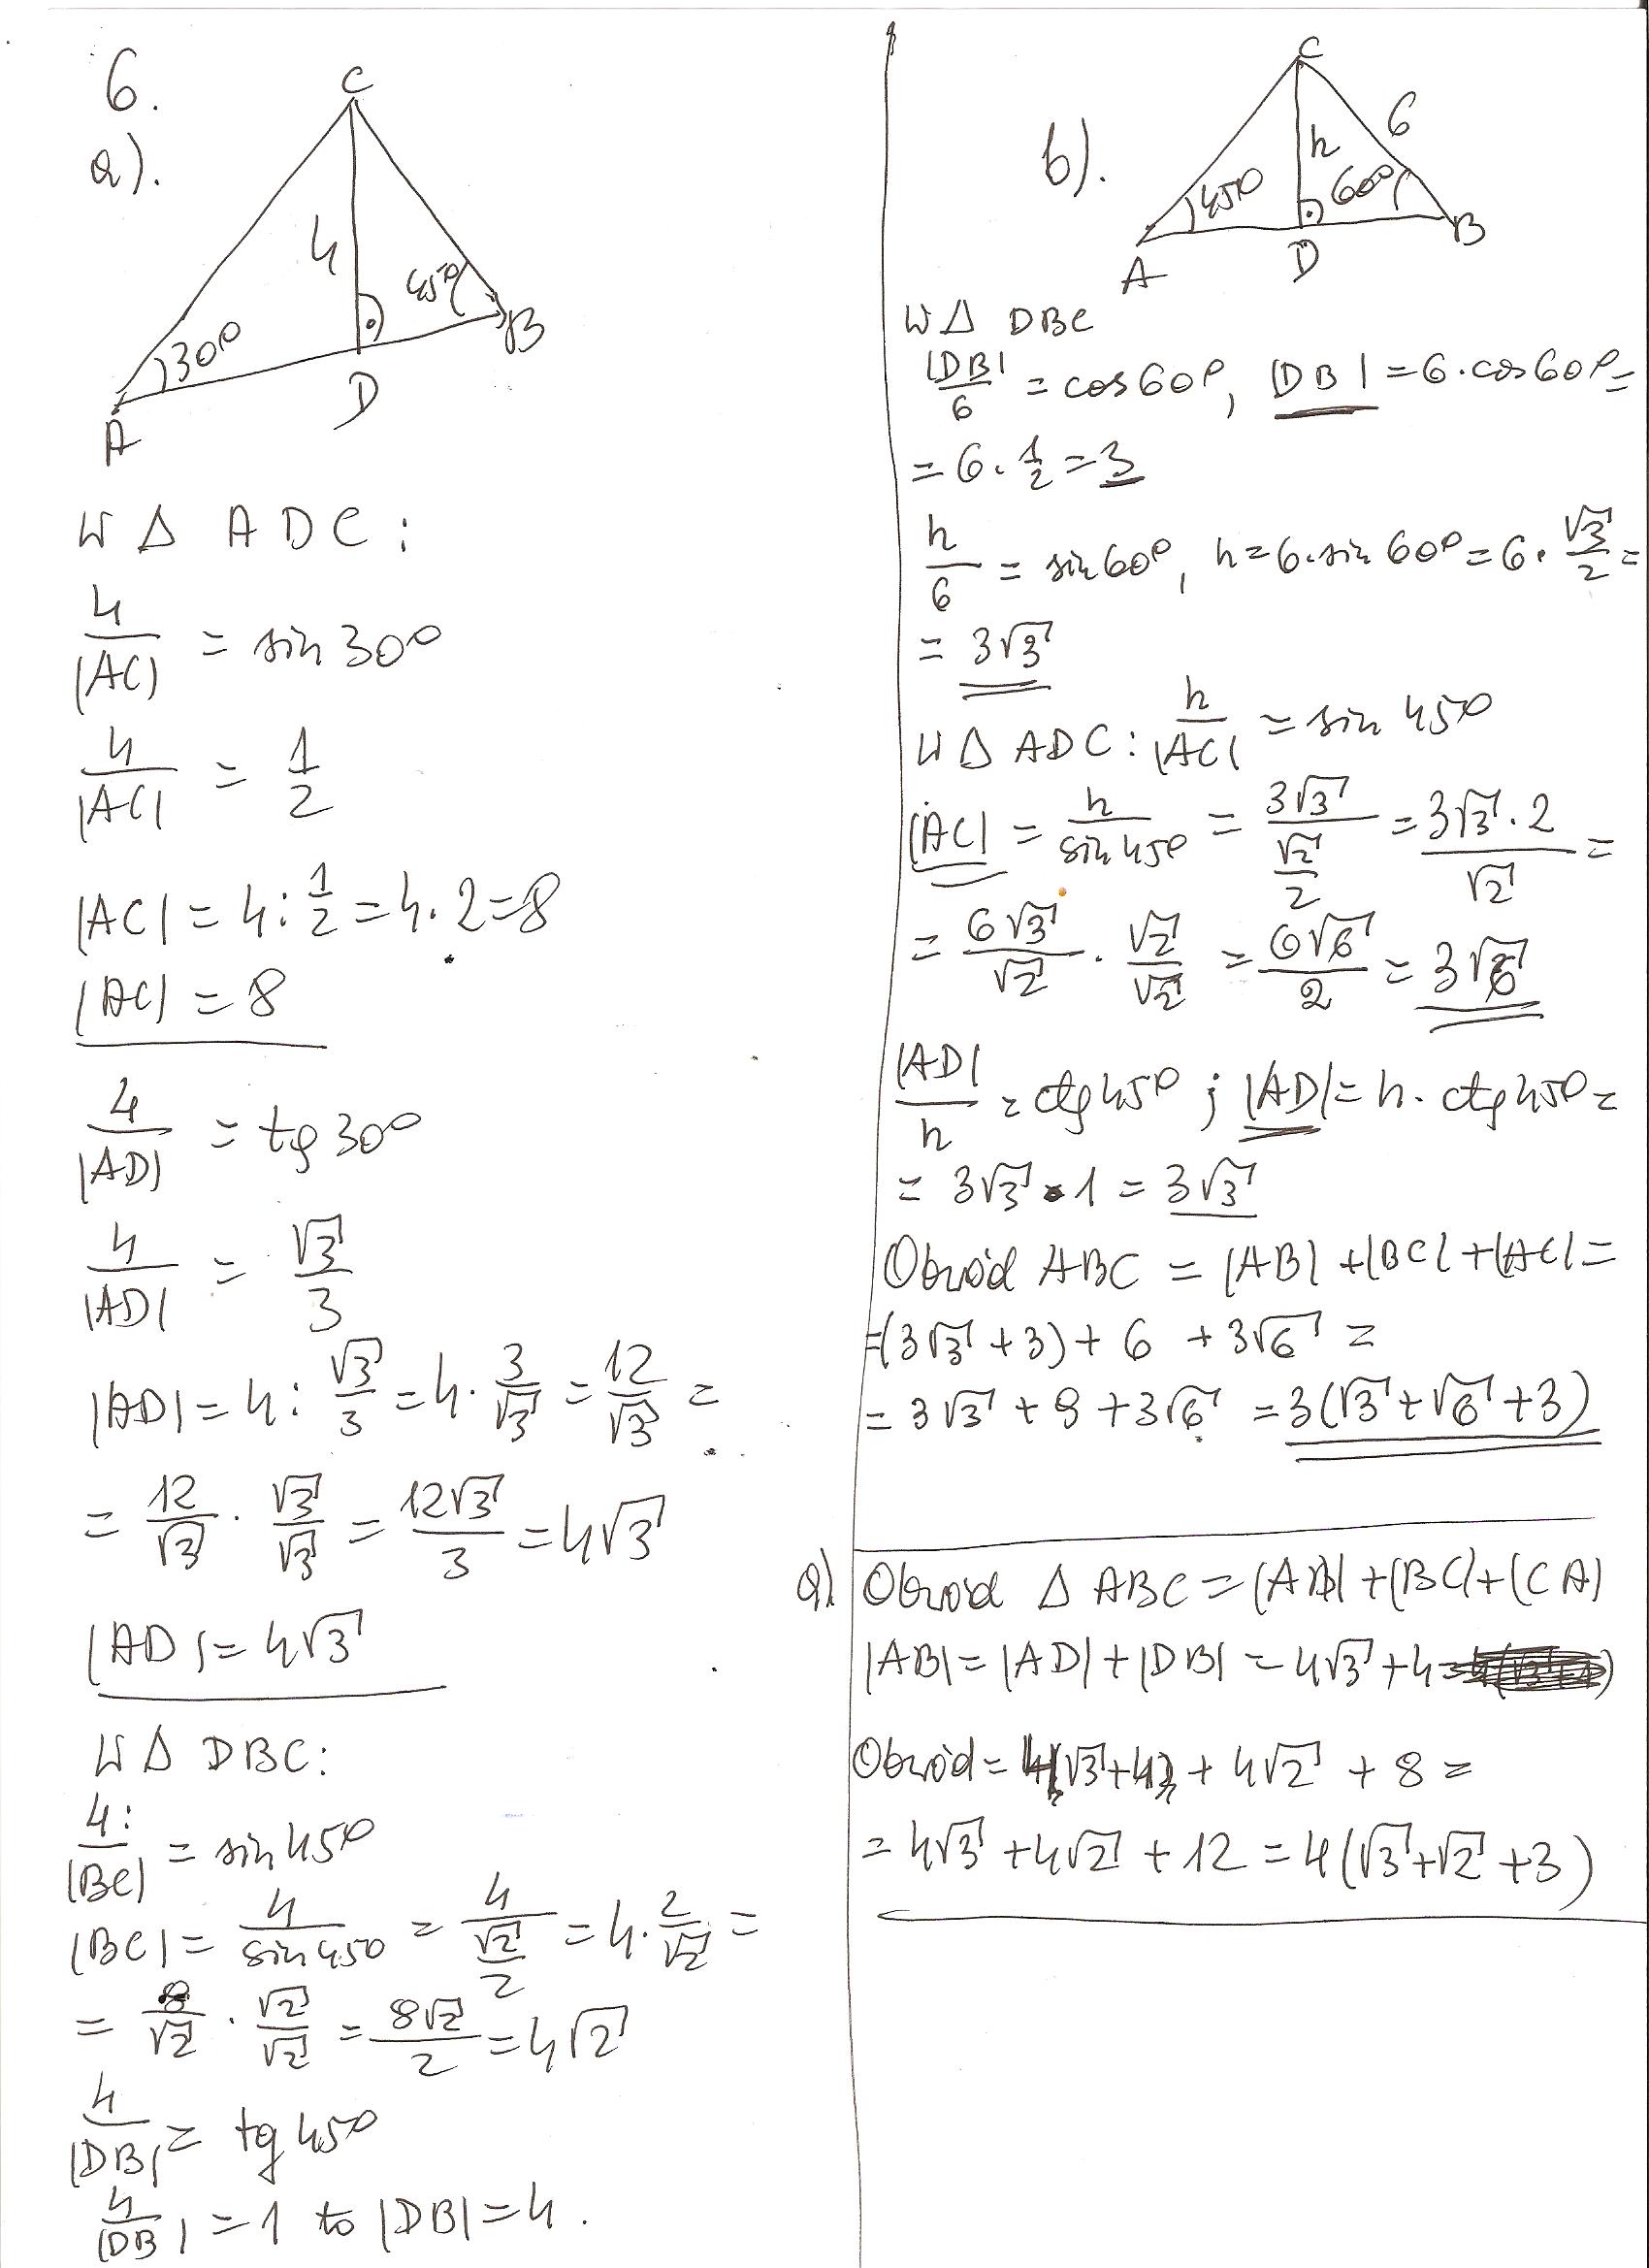 6.
a).
C
4
30°
45°
A
D
B
W Δ ADC:
4/|AC| = sin 30°
4/|AC| = 1/2
|AC| = 4 : 1/2 = 4 · 2 = 8
|AC| = 8
4/|AD| = tg 30°
4/|AD| = √3/3
|AD| = 4 : √3/3 = 4 · 3/√3 = 12/√3 =
= 12/√3 · √3/√3 = 12√3/3 = 4√3
|AD| = 4√3
W Δ DBC:
4/|BC| = sin 45°
|BC| = 4/sin 45° = 4/(√2/2) = 4 · 2/√2 =
= 8/√2 · √2/√2 = 8√2/2 = 4√2
4/|DB| = tg 45°
4/|DB| = 1 to |DB| = 4.
b).
C
h
6
45°
60°
A
D
B
W Δ DBC
|DB|/6 = cos 60°, |DB| = 6 · cos 60° =
= 6 · 1/2 = 3
h/6 = sin 60°, h = 6 · sin 60° = 6 · √3/2 =
= 3√3
W Δ ADC: h/|AC| = sin 45°
|AC| = h/sin 45° = 3√3/(√2/2) = 3√3 · 2/√2 =
= 6√3/√2 · √2/√2 = 6√6/2 = 3√6
|AD|/h = ctg 45° ; |AD| = h · ctg 45° =
= 3√3 · 1 = 3√3
Obwód ABC = |AB| + |BC| + |AC| =
= (3√3 + 3) + 6 + 3√6 =
= 3√3 + 9 + 3√6 = 3(√3 + √6 + 3)
a) Obwód Δ ABC = |AB| + |BC| + |CA|
|AB| = |AD| + |DB| = 4√3 + 4
Obwód = 4√3 + 4 + 4√2 + 8 =
= 4√3 + 4√2 + 12 = 4(√3 + √2 + 3)